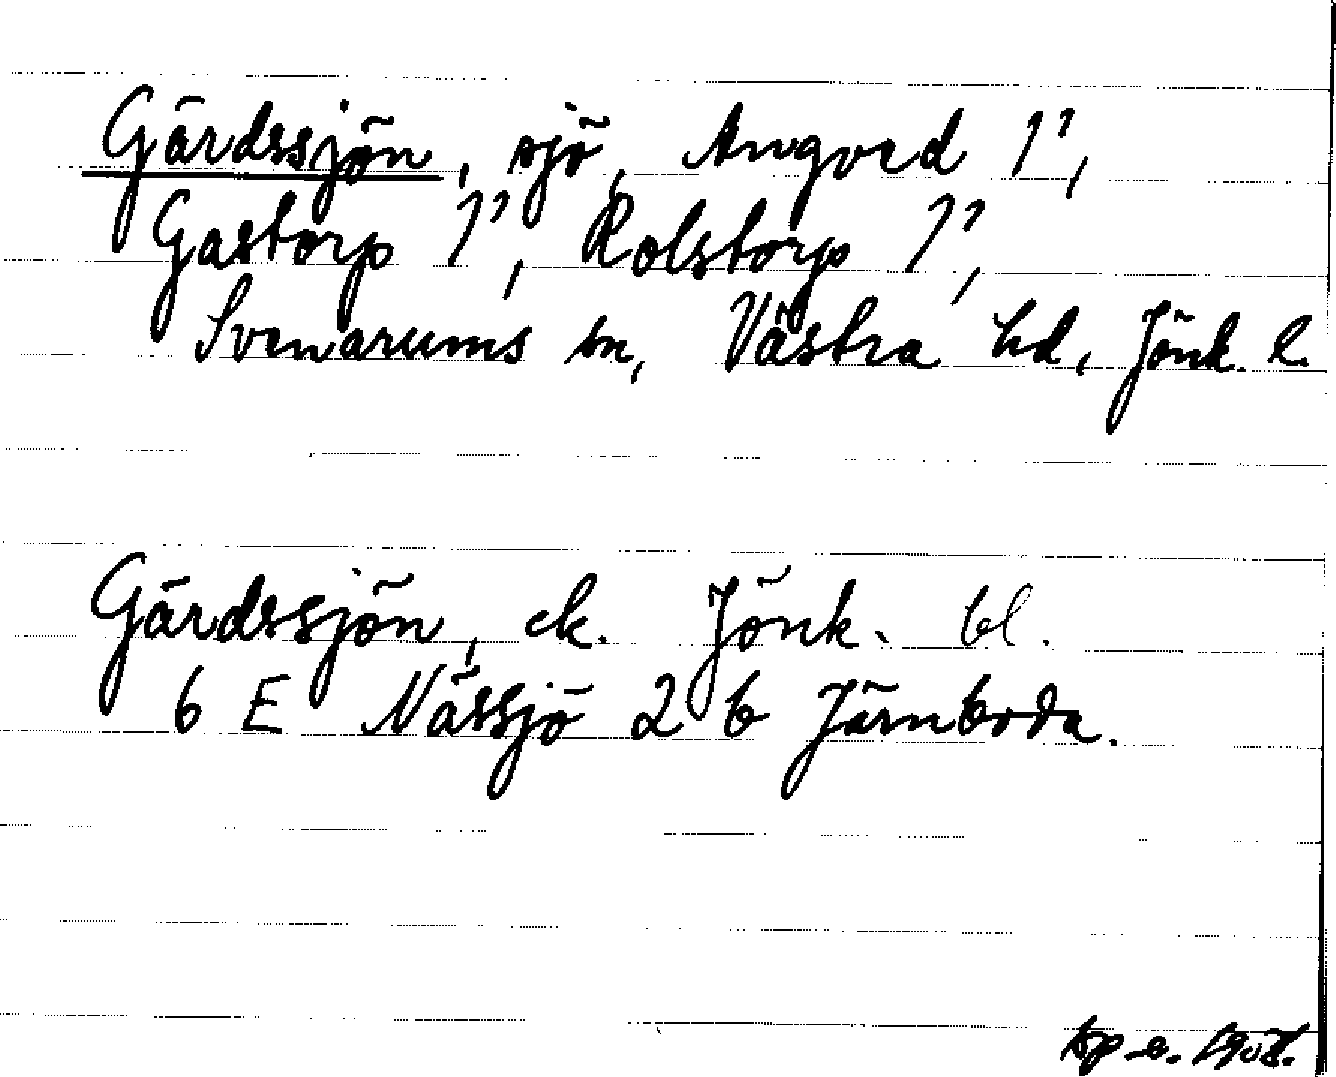 Gärdssjön, sjö, Angverd 1²,
Gastorp 1², Rolstorp 1²,
Svenarums sn, Västra hd, Jönk. l.
Gärdssjön, ek. Jönk. bl.
6 E Nässjö 2 b Järnboda.